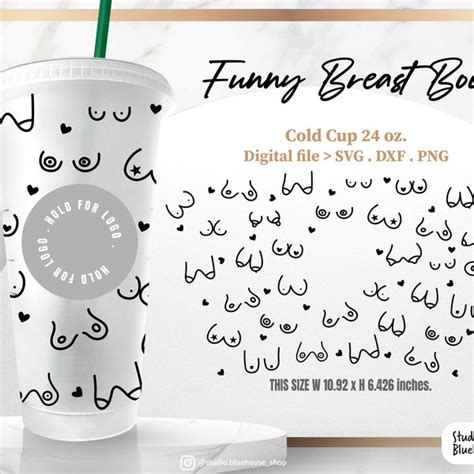 Funny Breast Boo
Cold Cup 24 oz.
Digital file > SVG . DXF . PNG
HOLD FOR LOGO . HOLD FOR LOGO .
THIS SIZE W 10.92 x H 6.426 inches.
Studi
Blueh
@studio.bluehouse_shop